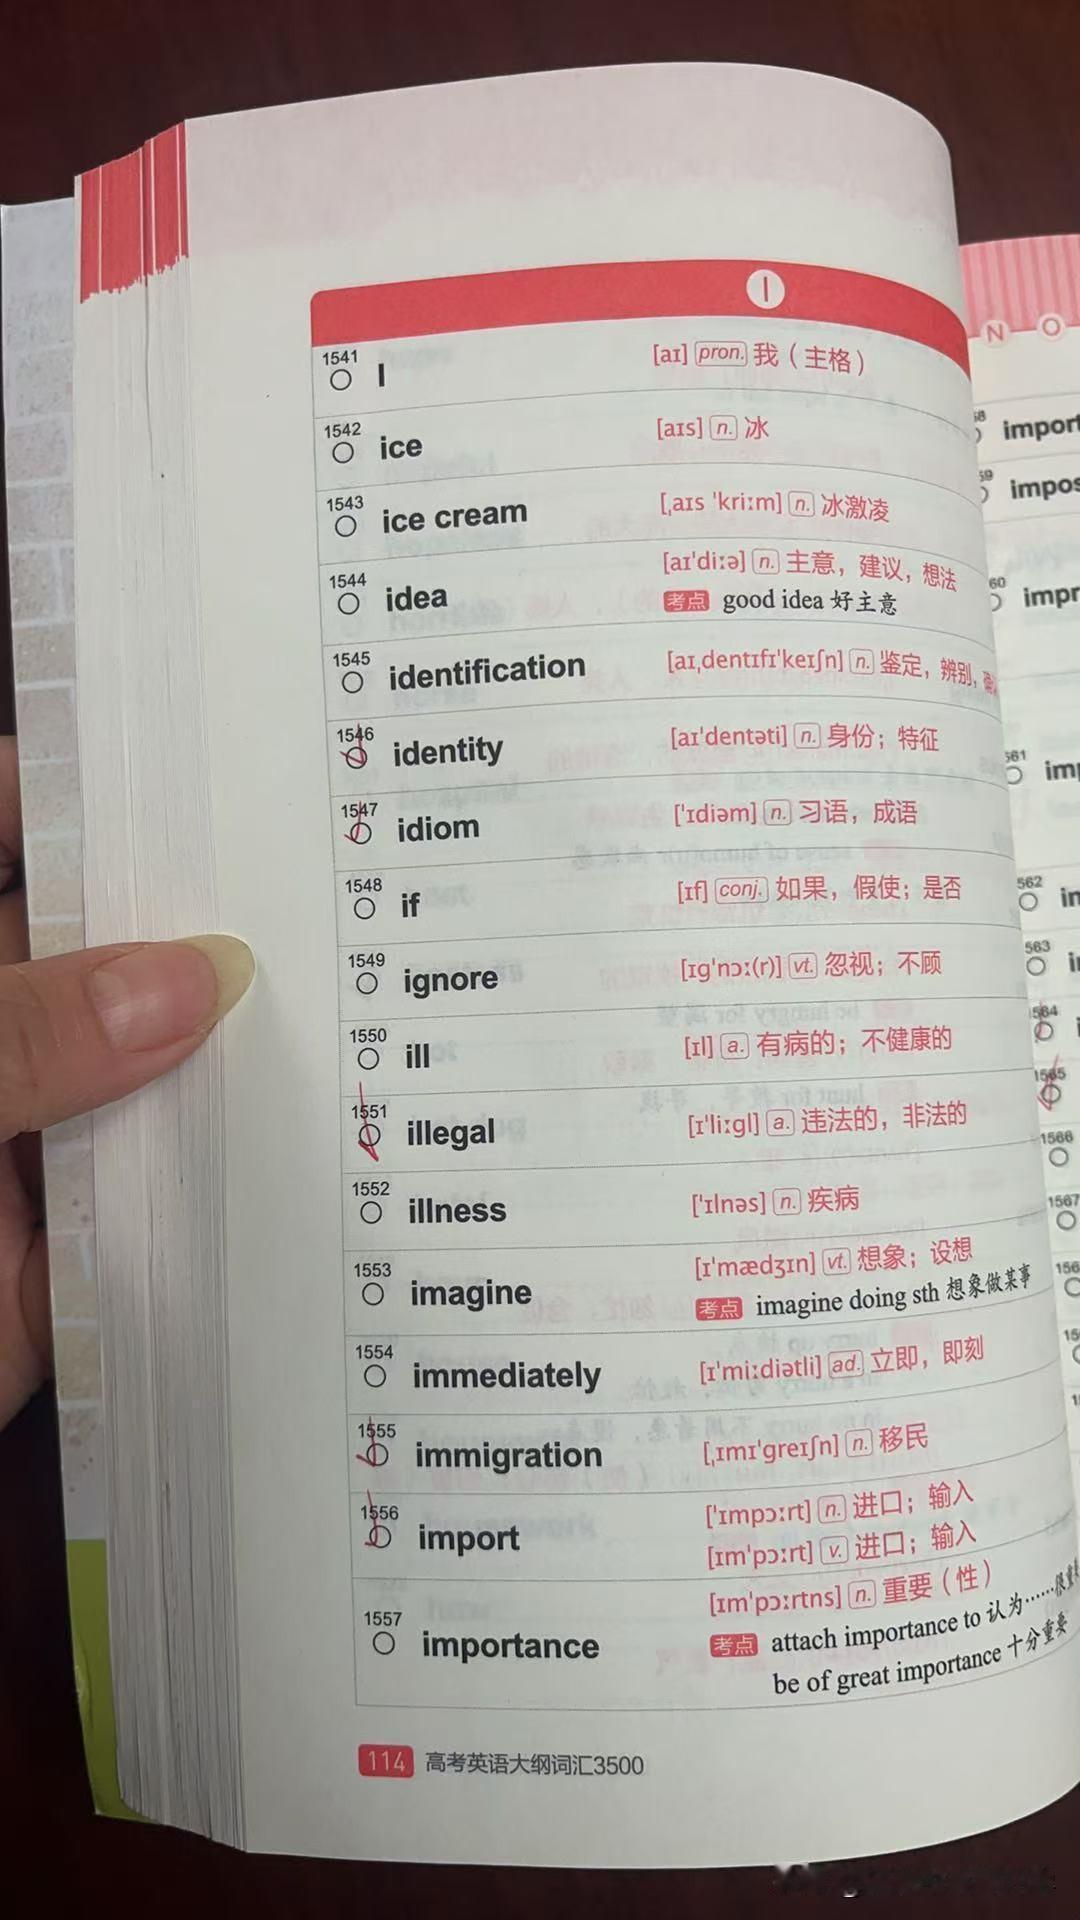 I
1541 I [aɪ] pron. 我（主格）
1542 ice [aɪs] n. 冰
1543 ice cream [ˌaɪs ˈkriːm] n. 冰激凌
1544 idea [aɪˈdiːə] n. 主意，建议，想法
考点 good idea 好主意
1545 identification [aɪˌdentɪfɪˈkeɪʃn] n. 鉴定，辨别，
1546 identity [aɪˈdentəti] n. 身份；特征
1547 idiom [ˈɪdiəm] n. 习语，成语
1548 if [ɪf] conj. 如果，假使；是否
1549 ignore [ɪɡˈnɔː(r)] vt. 忽视；不顾
1550 ill [ɪl] a. 有病的；不健康的
1551 illegal [ɪˈliːɡl] a. 违法的，非法的
1552 illness [ˈɪlnəs] n. 疾病
1553 imagine [ɪˈmædʒɪn] vt. 想象；设想
考点 imagine doing sth 想象做某事
1554 immediately [ɪˈmiːdiətli] ad. 立即，即刻
1555 immigration [ˌɪmɪˈɡreɪʃn] n. 移民
1556 import [ˈɪmpɔːrt] n. 进口；输入
[ɪmˈpɔːrt] v. 进口；输入
1557 importance [ɪmˈpɔːrtns] n. 重要（性）
考点 attach importance to 认为……很重
be of great importance 十分重要
114 高考英语大纲词汇3500
N O
import
impos
impr
561 imp
562 in
563 i
1564 i
1565
1566
1567